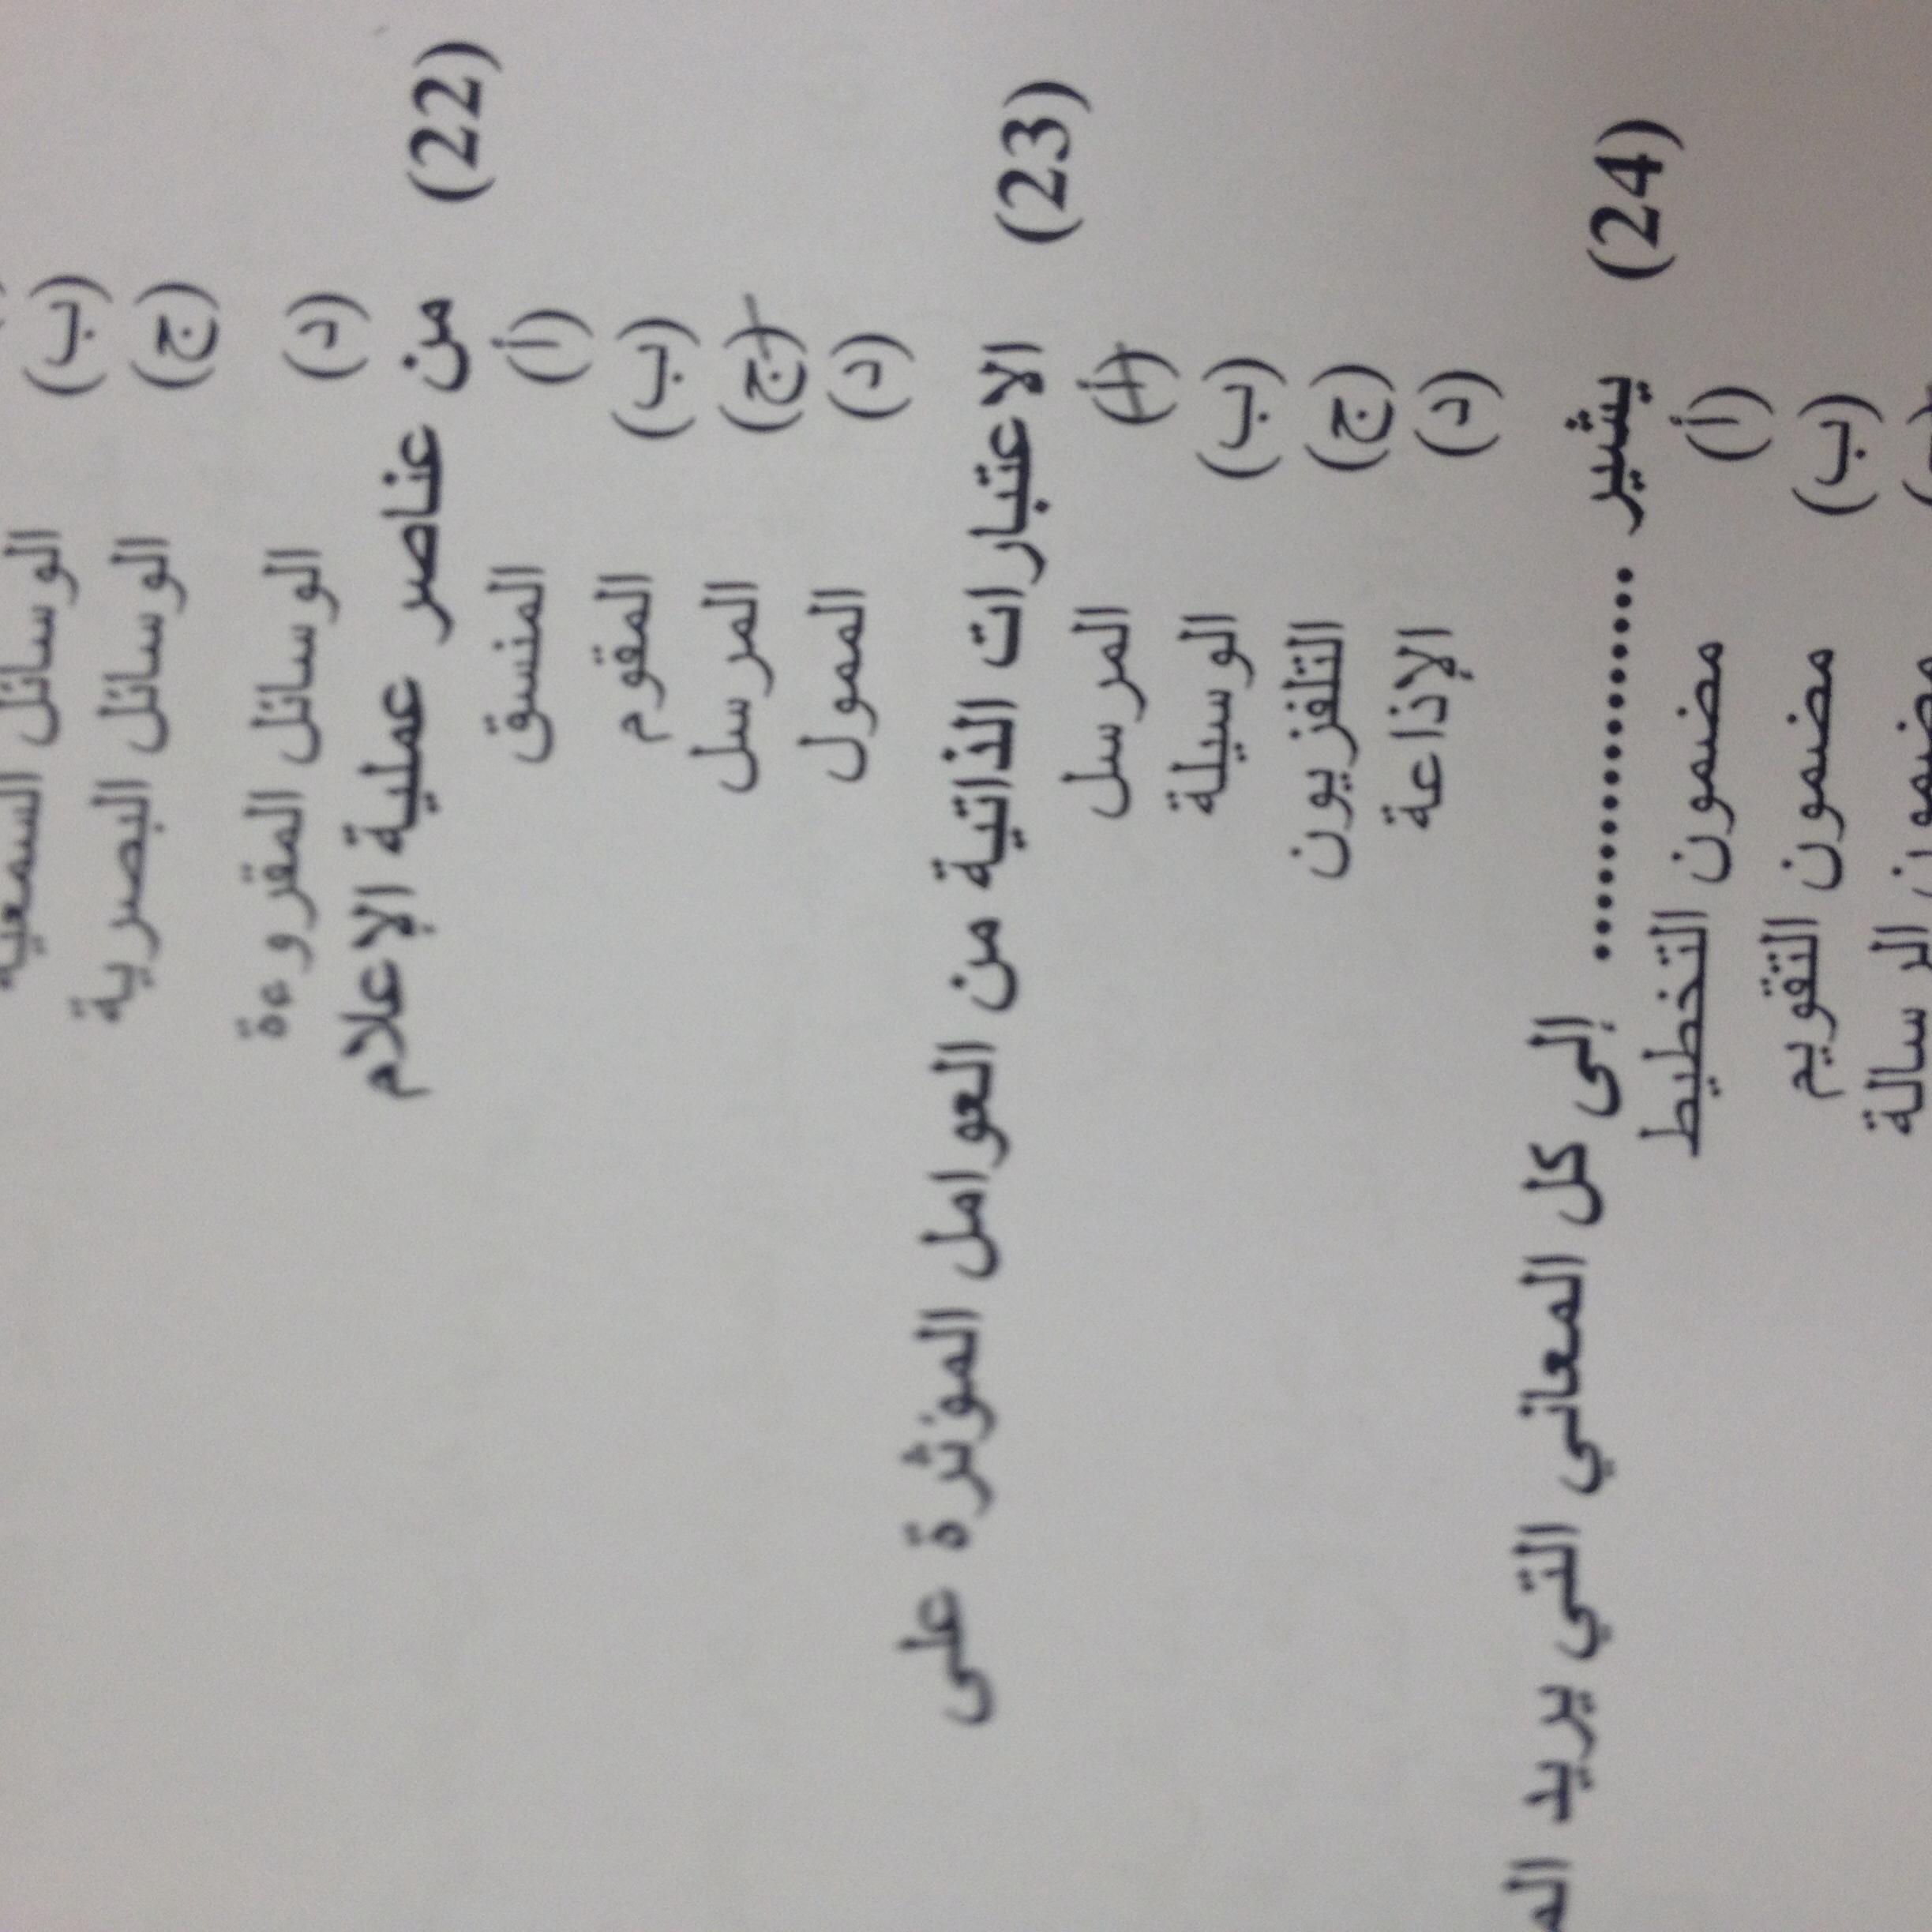 (ب) الوسائل السمعية
(ج) الوسائل البصرية
(د) الوسائل المقروءة
(22) من عناصر عملية الإعلام
(أ) المنسق
(ب) المقوم
(ج) المرسل
(د) الممول
(23) الاعتبارات الذاتية من العوامل المؤثرة على
(أ) المرسل
(ب) الوسيلة
(ج) التلفزيون
(د) الإذاعة
(24) يشير .................. إلى كل المعاني التي يريد
(أ) مضمون التخطيط
(ب) مضمون التقويم
مضمون الرسالة